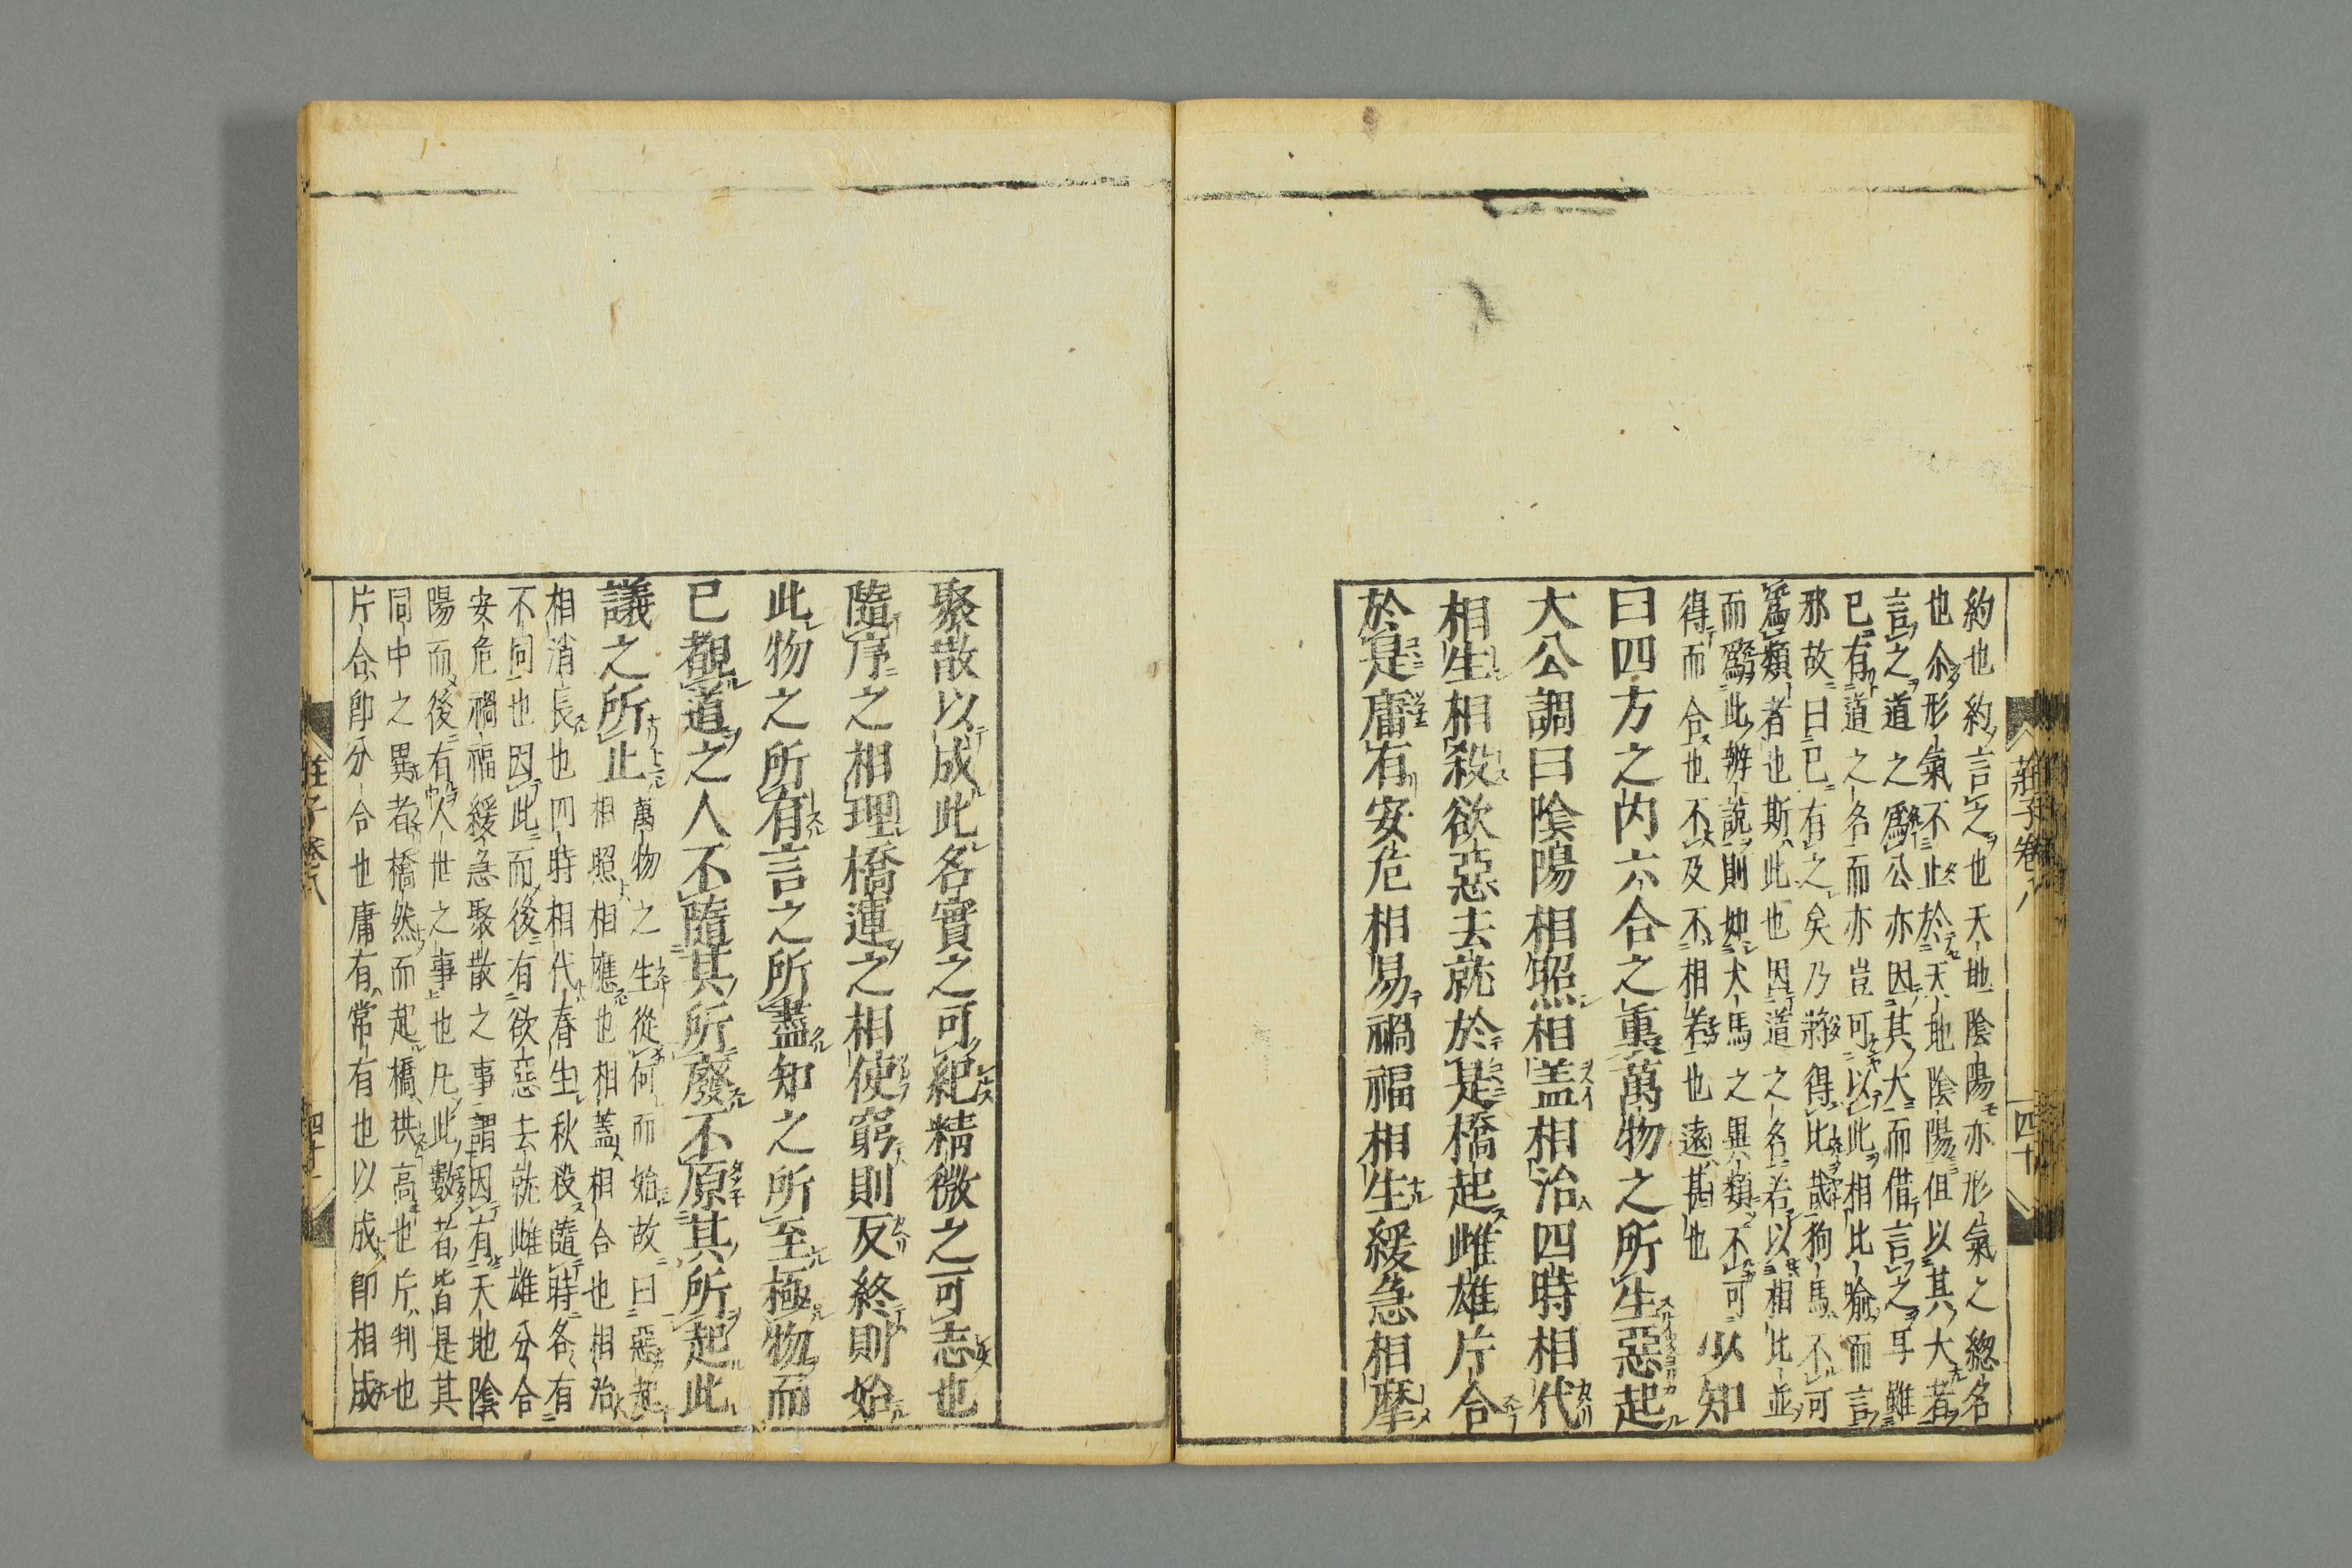 約也約言之也天地陰陽亦形氣之緫名
也尒形氣不止於天地陰陽但以其大者
言之道之爲公亦因其大而借言之耳雖
已有道之名而亦豈可以此相比喻而言
邪故曰已有之矣乃將得比哉狗馬不可
爲類者也斯此也因道之名若以相比並
而爲此辨說則如犬馬之異類不可
得而合也不及不相若也遠甚也
少知
曰四方之内六合之裏萬物之所生惡起
大公調曰陰陽相照相盖相治四時相代
相生相殺欲惡去就於是橋起雌雄片合
於是庸有安危相易禍福相生緩急相摩
莊子卷八
四十
聚散以成此名實之可紀精微之可志也
隨序之相理橋運之相使窮則反終則始
此物之所有言之所盡知之所至極物而
已覩道之人不隨其所廢不原其所起此
議之所止
萬物之生從何而始故曰惡起
相照相應也相蓋相合也相治
相消長也四時相代春生秋殺隨時各有
不同也因此而後有欲惡去就雌雄分合
安危禍福緩急聚散之事謂因有天地陰
陽而後有人世之事也凡此數者皆是其
同中之異者橋然而起橋拱高也片判也
片合即分合也庸有常有也以成即相成
莊子卷八
四十一